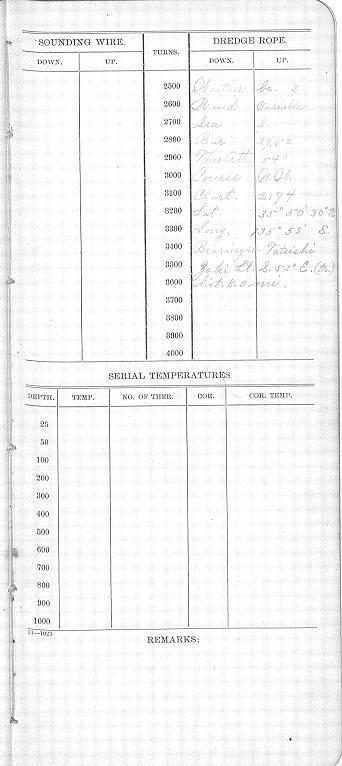 SOUNDING WIRE. TURNS. DREDGE ROPE.
DOWN. UP. DOWN. UP.
2500 Weather bc. 3
2600 Wind Variable
2700 Sea S.
2800 Bar 29.52
2900 Ther 54°
3000 Course
3100 Chart. 2174
3200 Lat 35° 50' 30"
3300 Long. 135° 53'
3400 Bearings:- Tateishi
3500 Zaki Lt. S. 53° E. (tr.)
3600 dist. 8.0 mi.
3700
3800
3900
4000
SERIAL TEMPERATURES
DEPTH. TEMP. NO. OF THER. COR. COR. TEMP.
25
50
100
200
300
400
500
600
700
800
900
1000
11—1023
REMARKS: